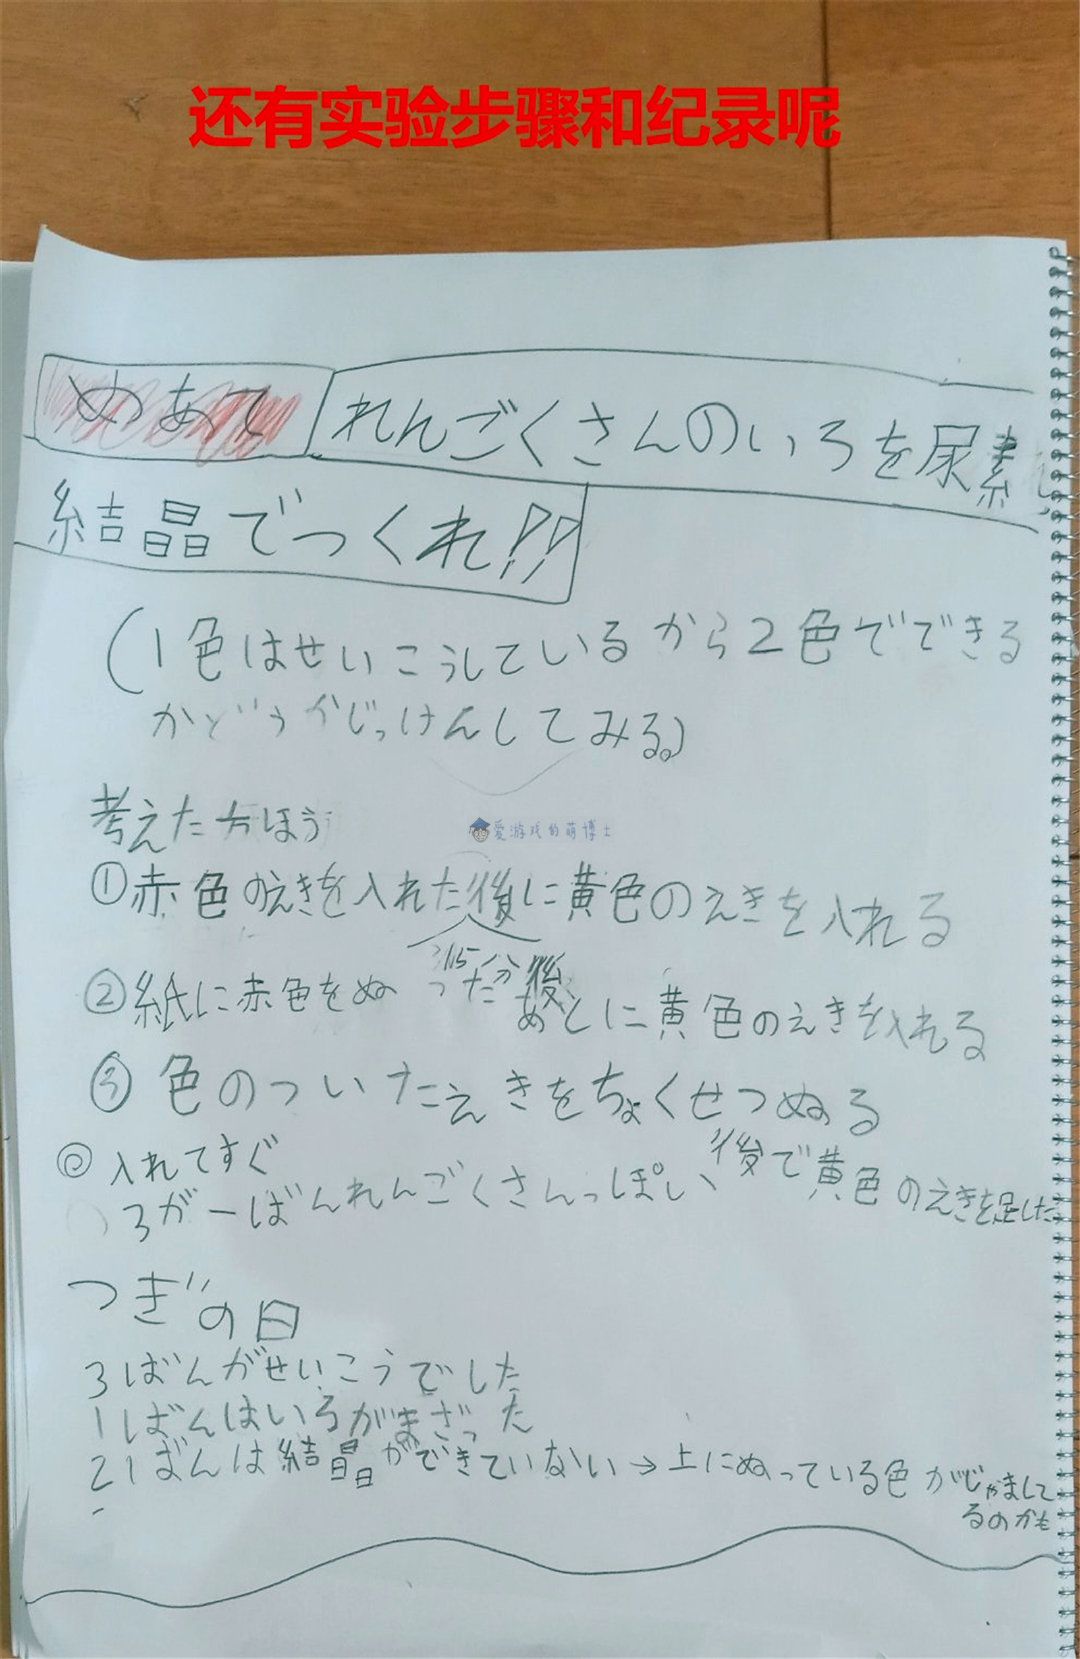 还有实验步骤和纪录呢
めあて れんごくさんのいろを尿素
結晶でつくれ!!
(1色はせいこうしているから2色でできる
かどうかじっけんしてみる。)
考えた方ほう
爱游戏的萌博士
①赤色のえきを入れた後に黄色のえきを入れる
②紙に赤色をぬった後、あとに黄色のえきを入れる
③色のついたえきをちょくせつぬる
◎入れてすぐ
3が一ばんれんごくさんっぽい 後で黄色のえきを足した
つぎの日
3ばんがせいこうでした
1ばんはいろがまざった
2ばんは結晶ができていない→上にぬっている色がじゃまして
るのかも